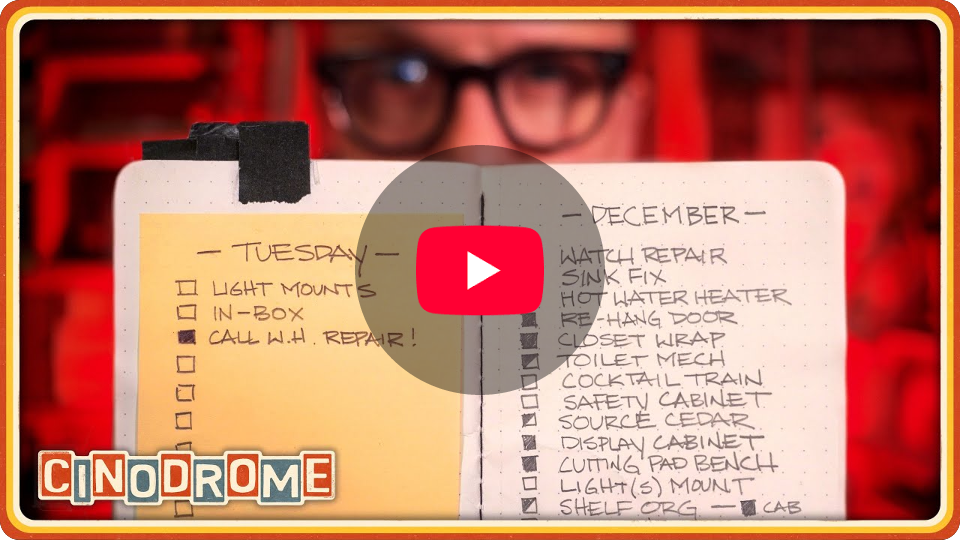 — TUESDAY —
LIGHT MOUNTS
IN-BOX
CALL W.H. REPAIR!
— DECEMBER —
WATCH REPAIR
SINK FIX
HOT WATER HEATER
RE-HANG DOOR
CLOSET WRAP
TOILET MECH
COCKTAIL TRAIN
SAFETY CABINET
SOURCE CEDAR
DISPLAY CABINET
CUTTING PAD BENCH
LIGHT(S) MOUNT
SHELF ORG — CAB
CINODROME